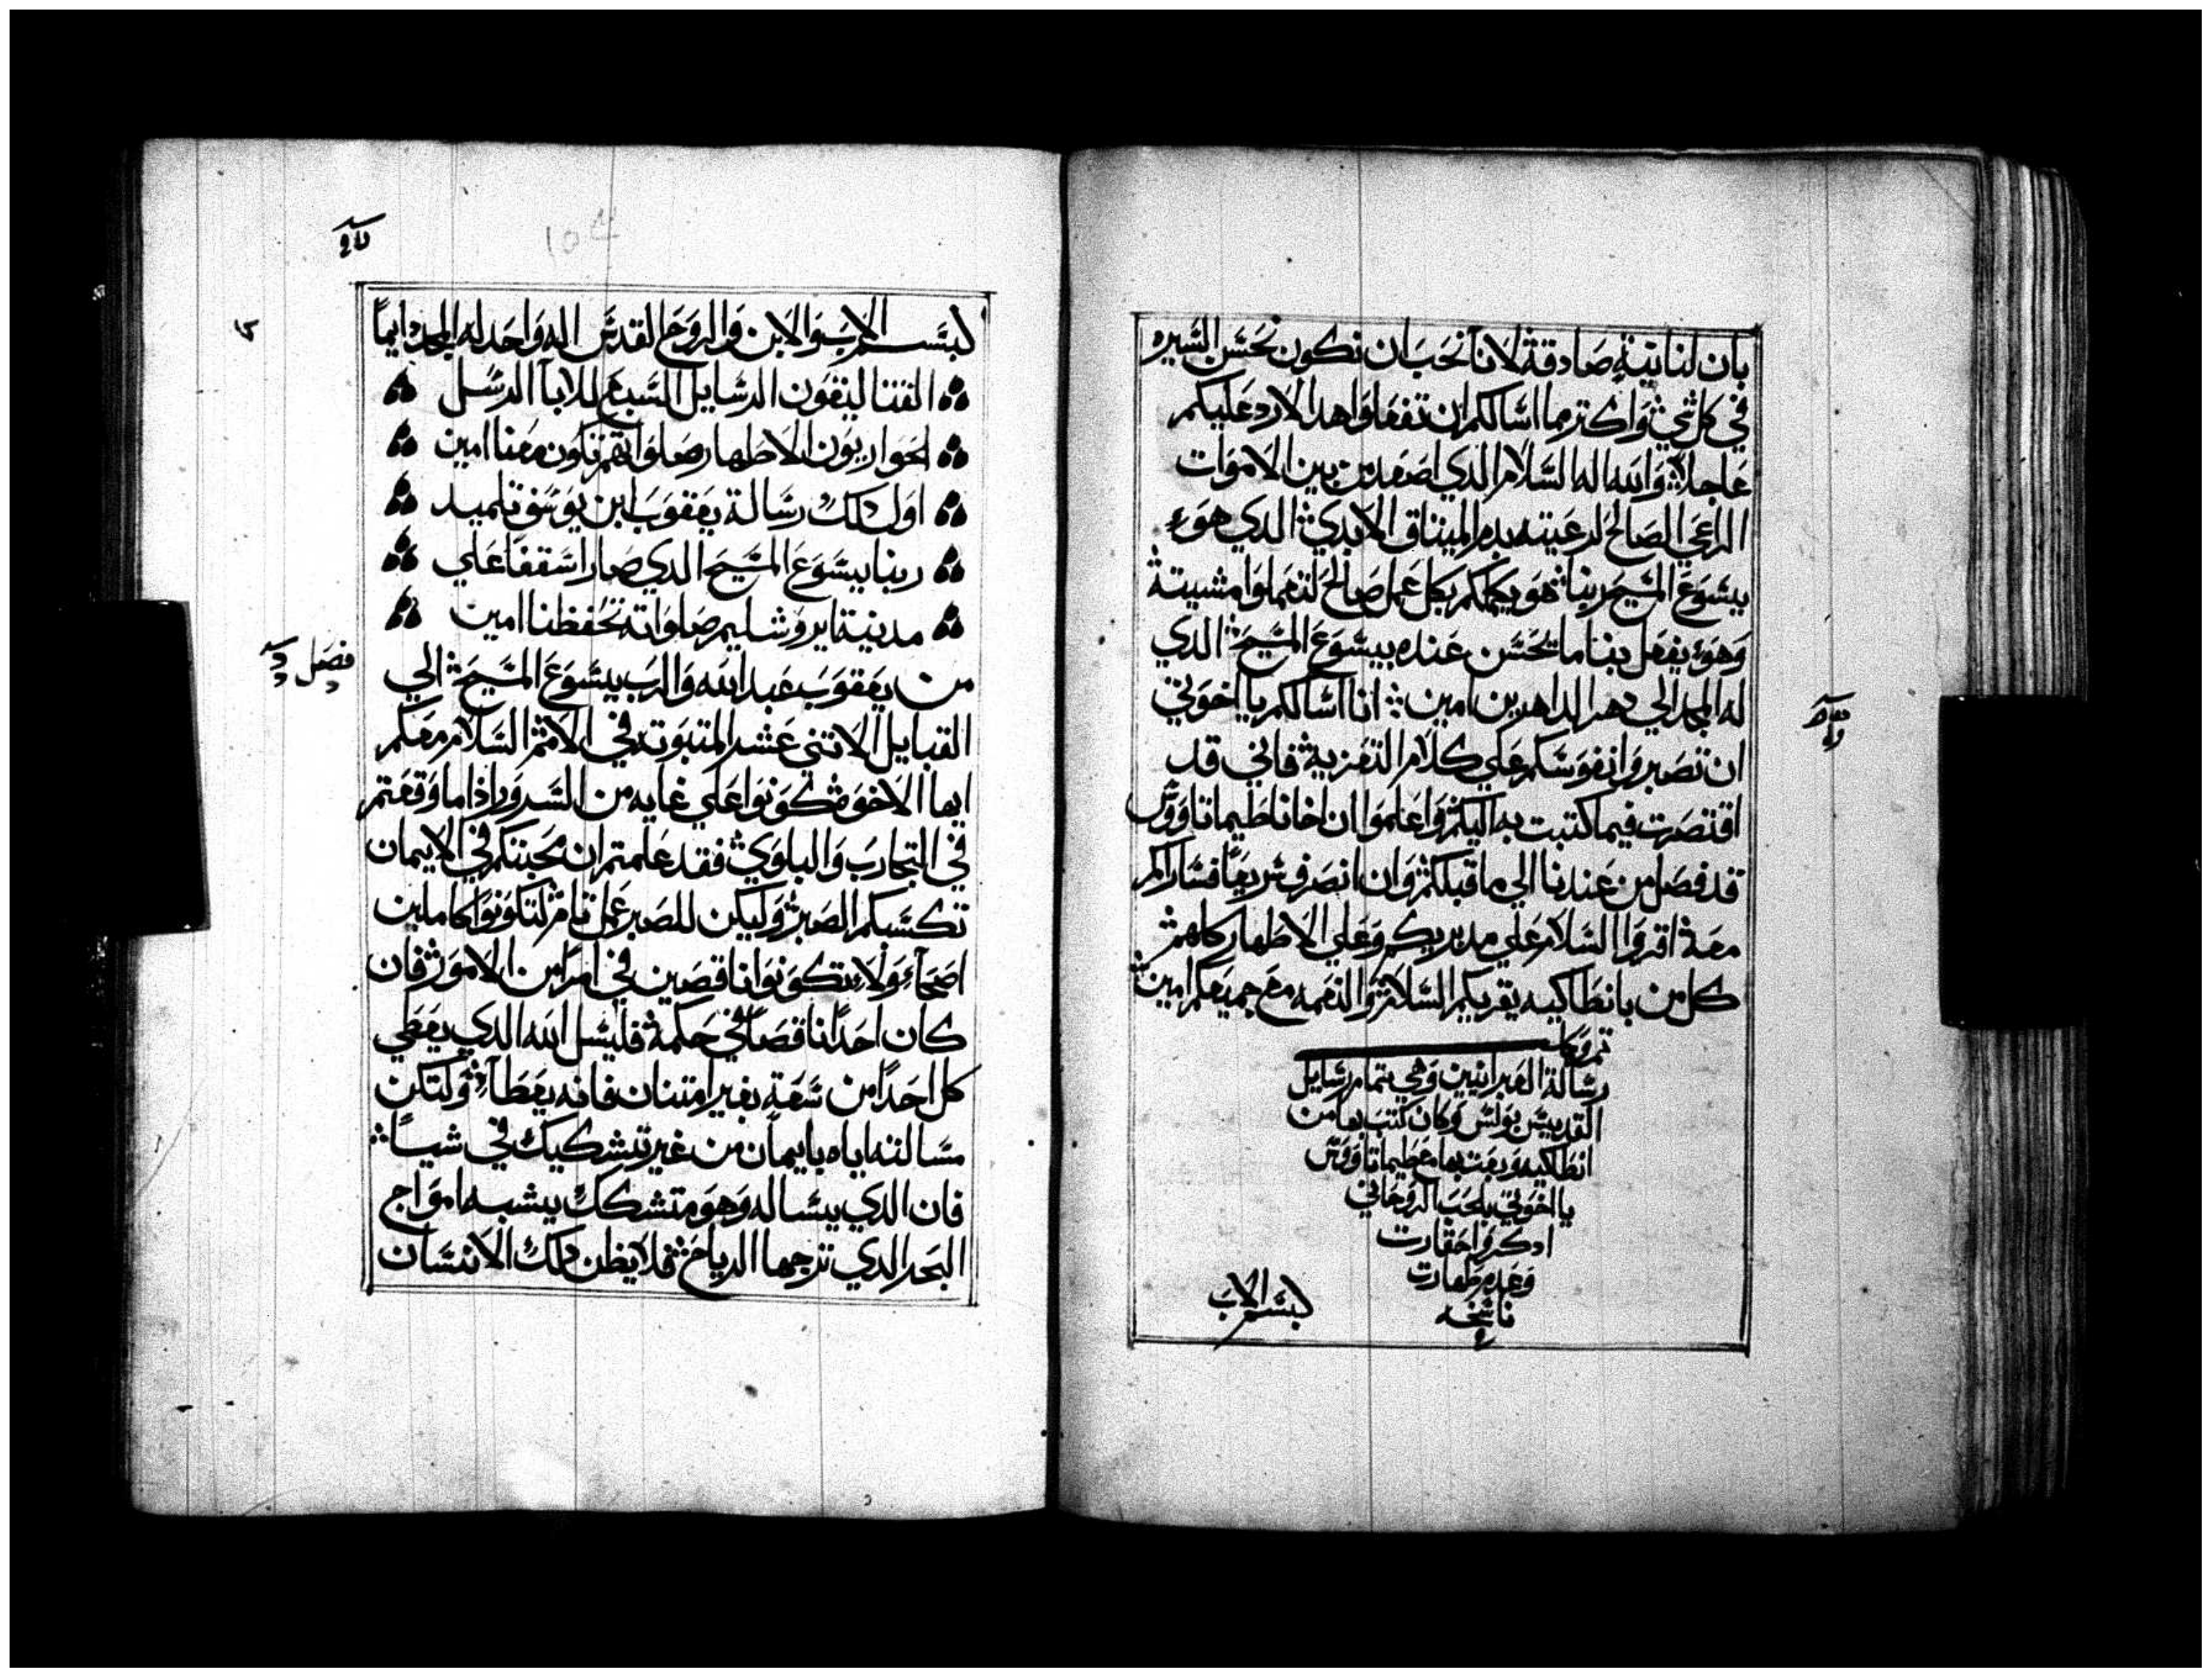 بان لنا نية صادقة لانا نحب ان نكون نحسن السيره
في كل شي واكتر ما اسالكم ان تفعلوا هدا لارد عليكم
عاجلا والله اله السلام الدي اصعد من بين الاموات
الراعي الصالح لرعيته بدم الميتاق الابدي الدي هوء
يسوع المسيح ربنا هو يكملكم بكل عمل صالح لتعملوا مشيته
وهوء يفعل بنا ما يحسن عنده بيسوع المسيح الدي
له المجد الي دهر الداهرين امين انا اسالكم يا اخوتي
ان تصبروا انفوسكم علي كلام التعزية فاني قد
اقتصرت فيما كتبت به اليكم واعلموا ان اخانا طيماتاووس
قد فصل من عندنا الي ما قبلكم وان انصرف سريعا فساراكم
معه اقروا السلام علي مدبريكم وعلي الاطهار كلهم
كل من بانطاكيه يقريكم السلام والنعمه مع جميعكم امين
تم وكل
رسالة العبرانيين وهي تمام رسايل
القديس بولس وكان كتب بها من
انطاكيه وبعت بها مع طيماتاووس
يا اخوتي بالحب الروحاني
ادكروا حقارت
وعدم طهارت
ناسخه
بسم الاب
بسم الاب والابن والروح القدس اله واحد له المجد دايما
الفتنا ليقون الرسايل السبع للابا الرسل
الحواريون الاطهار صلواتهم تكون معنا امين
اول دلك رسالة يعقوب ابن يوسف تلميد
ربنا يسوع المسيح الدي صار اسقفا علي
مدينة ايروشليم صلواته تحفظنا امين
فصل
من يعقوب عبد الله والرب يسوع المسيح الي
القبايل الاتنى عشر المتبوته في الامم السلام معكم
ايها الاخوه كونوا علي غايه من السرور اذا ما وقعتم
في التجارب والبلوي فقد علمتم ان محبتكم في الايمان
تكسبكم الصبر وليكن للصبر عمل تام لتكونوا كاملين
اصحاء ولا تتكونوا ناقصين في امرا من الامور فان
كان احدا ناقصا في حكمة فليسل الله الدي يعطي
كل احدا من سعة بغير امتنان فانه يعطاء ولتكن
مسالته اياه بايمان من غير تشكيك في شيا
فان الدي يساله وهو متشكك يشبه امواج
البحر الدي تزجها الرياح فلا يظن دلك الانسان